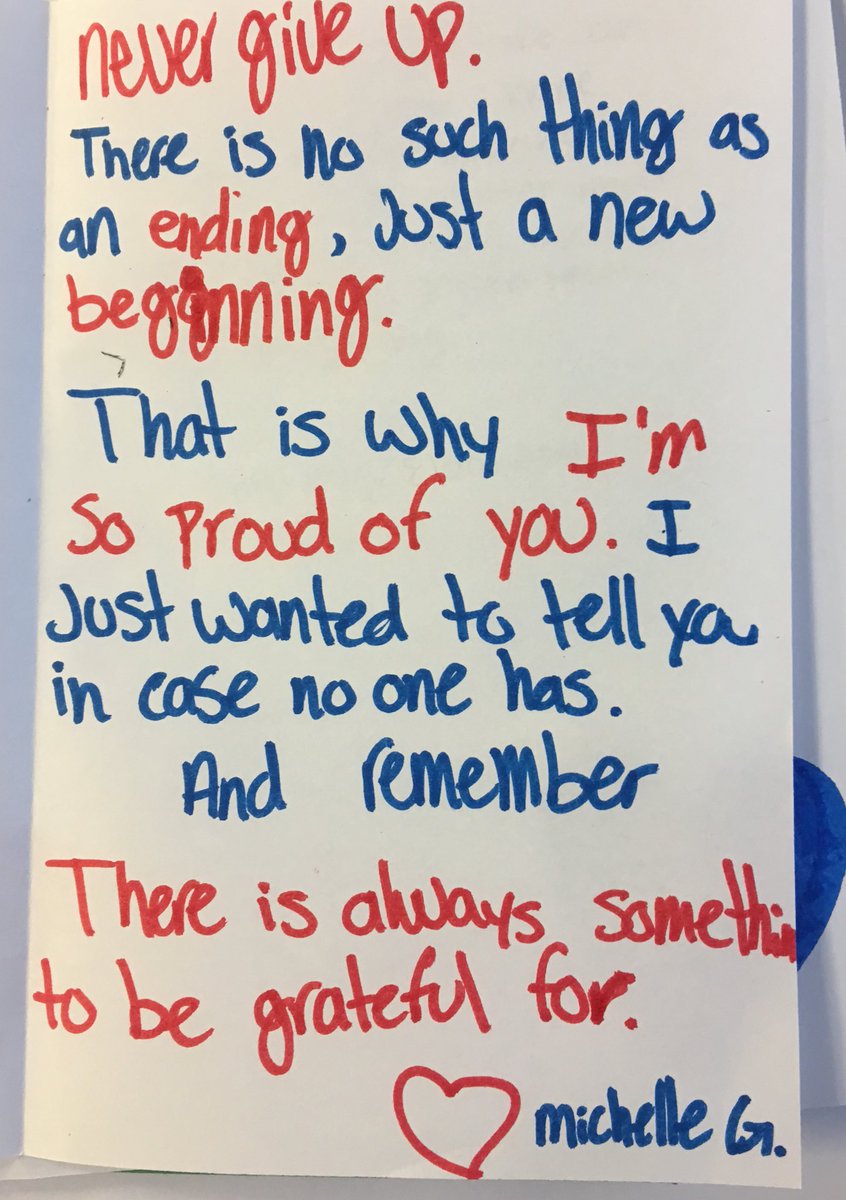 never give up.
There is no such thing as
an ending, Just a new
beginning.
That is why I'm
So Proud of you. I
Just wanted to tell you
in case no one has.
And remember
There is always somethin
to be grateful for.
michelle G.